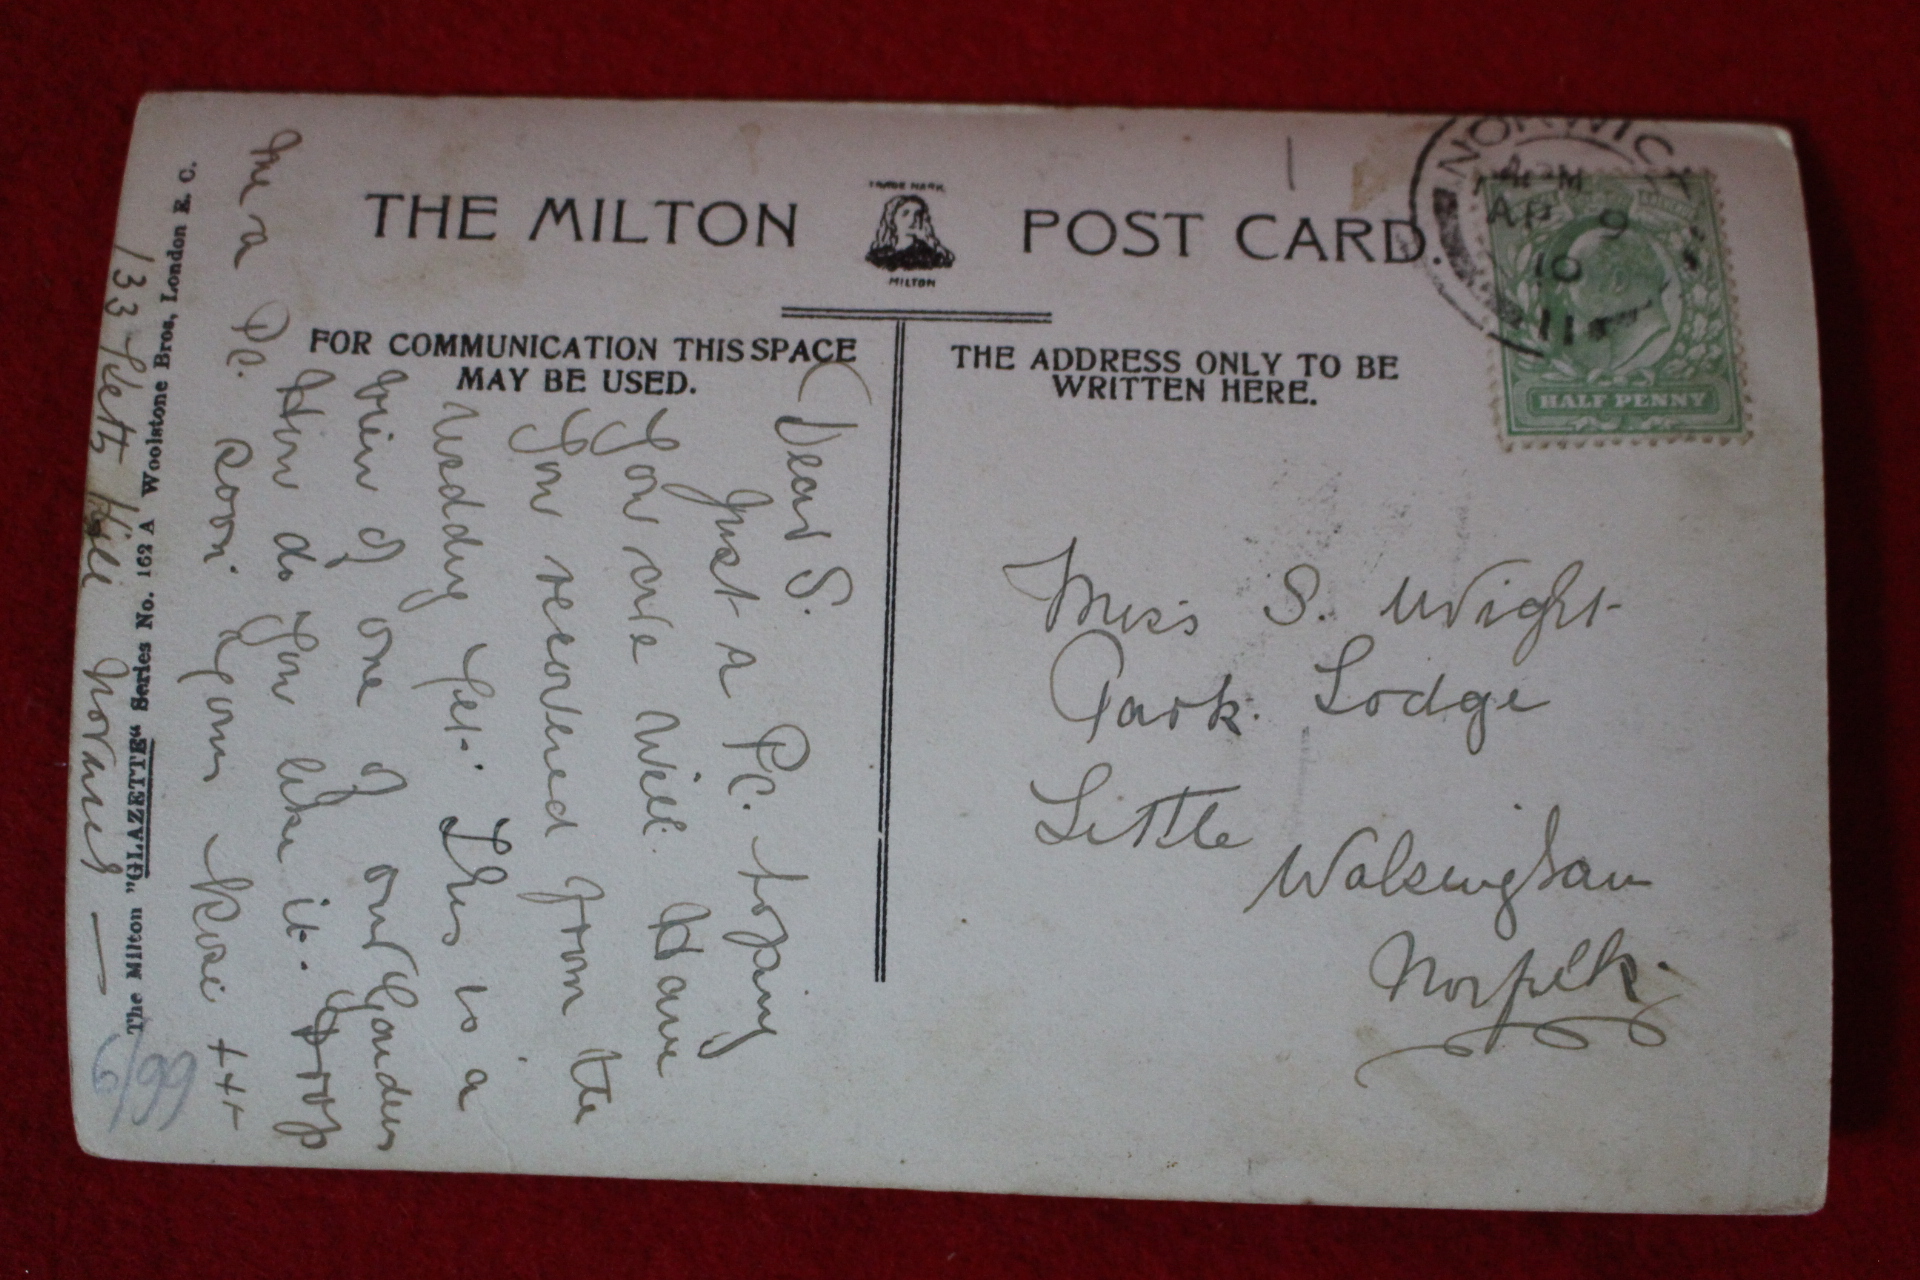 THE MILTON POST CARD.
TRADE MARK
MILTON
FOR COMMUNICATION THIS SPACE
MAY BE USED.
THE ADDRESS ONLY TO BE
WRITTEN HERE.
NORWICH
AP 9
10
11
HALF PENNY
Dear S.
Just a Pc. hoping
you are well. Have
you recovered from the
Wedding yet. This is a
view of one of our Gardens
How do you like it. Drop
me a Pc. soon. Yours Rose +++
133 Ketts Hill Norwich
Miss S. Wright
Park Lodge
Little
Walsingham
Norfolk.
The Milton "GLAZETTE" Series No. 162 A Woolstone Bros., London E. C.